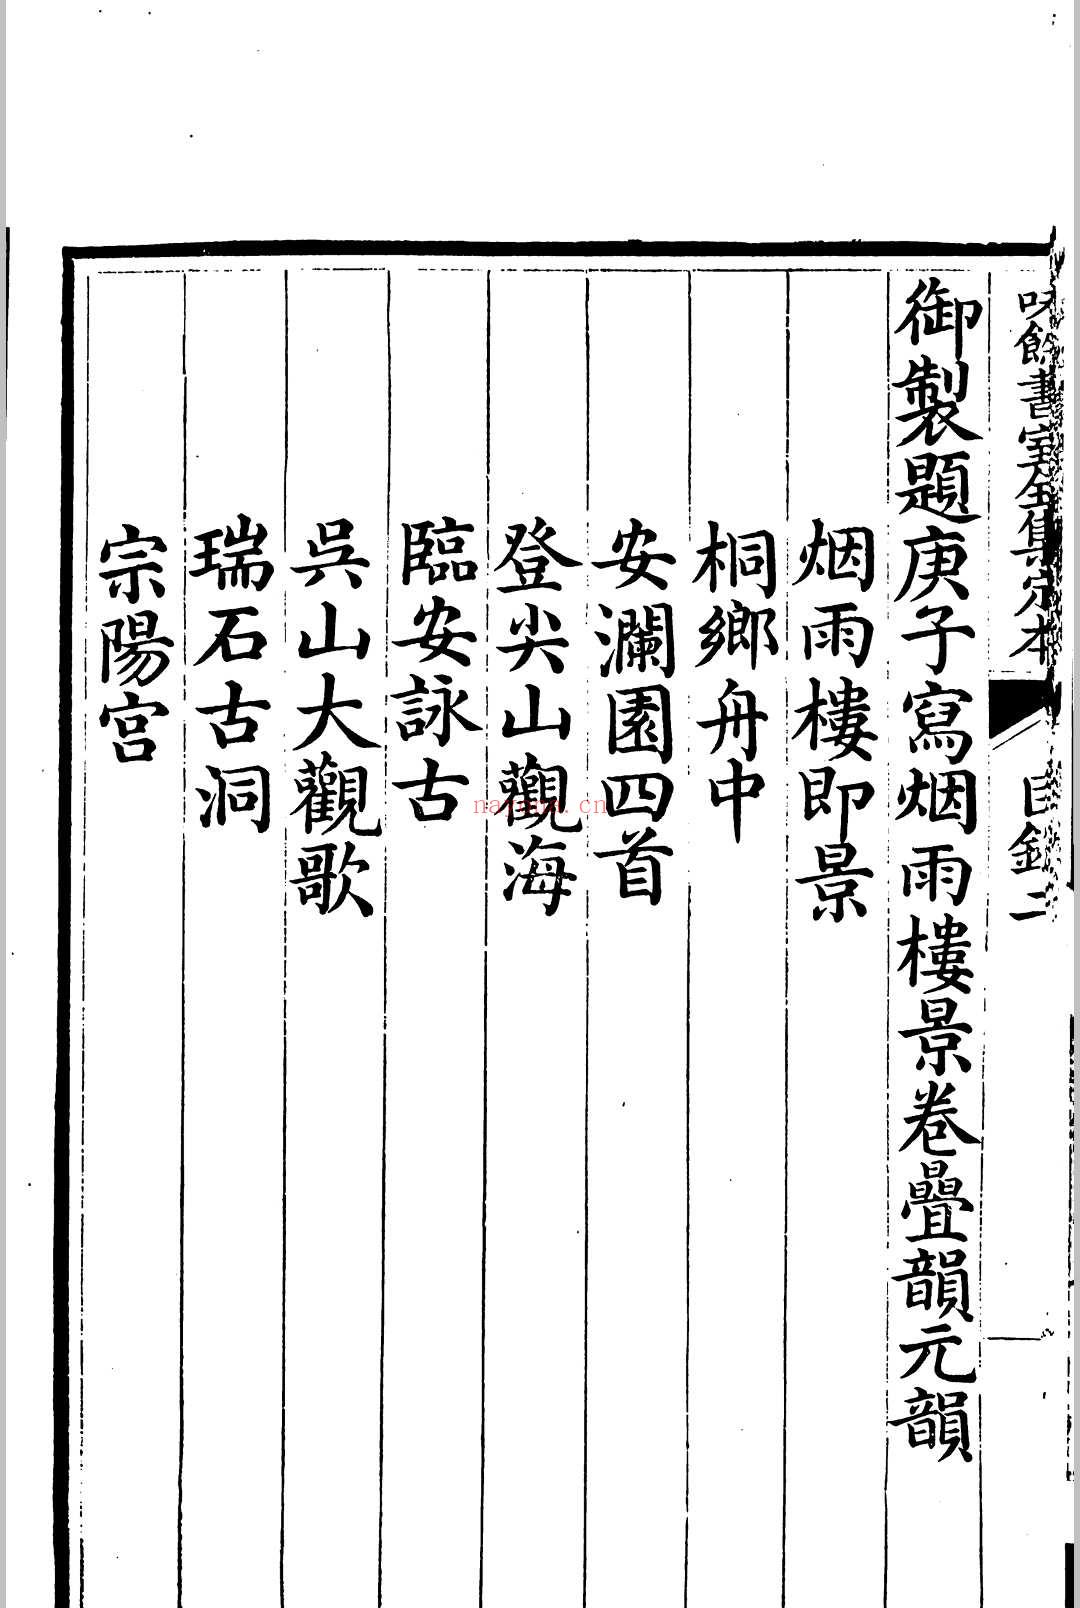 味餘書室全集定本
目録二
御製題庚子寫烟雨樓景卷疊韻元韻
烟雨樓即景
桐鄉舟中
安瀾園四首
登尖山觀海
臨安詠古
吳山大觀歌
瑞石古洞
宗陽宮